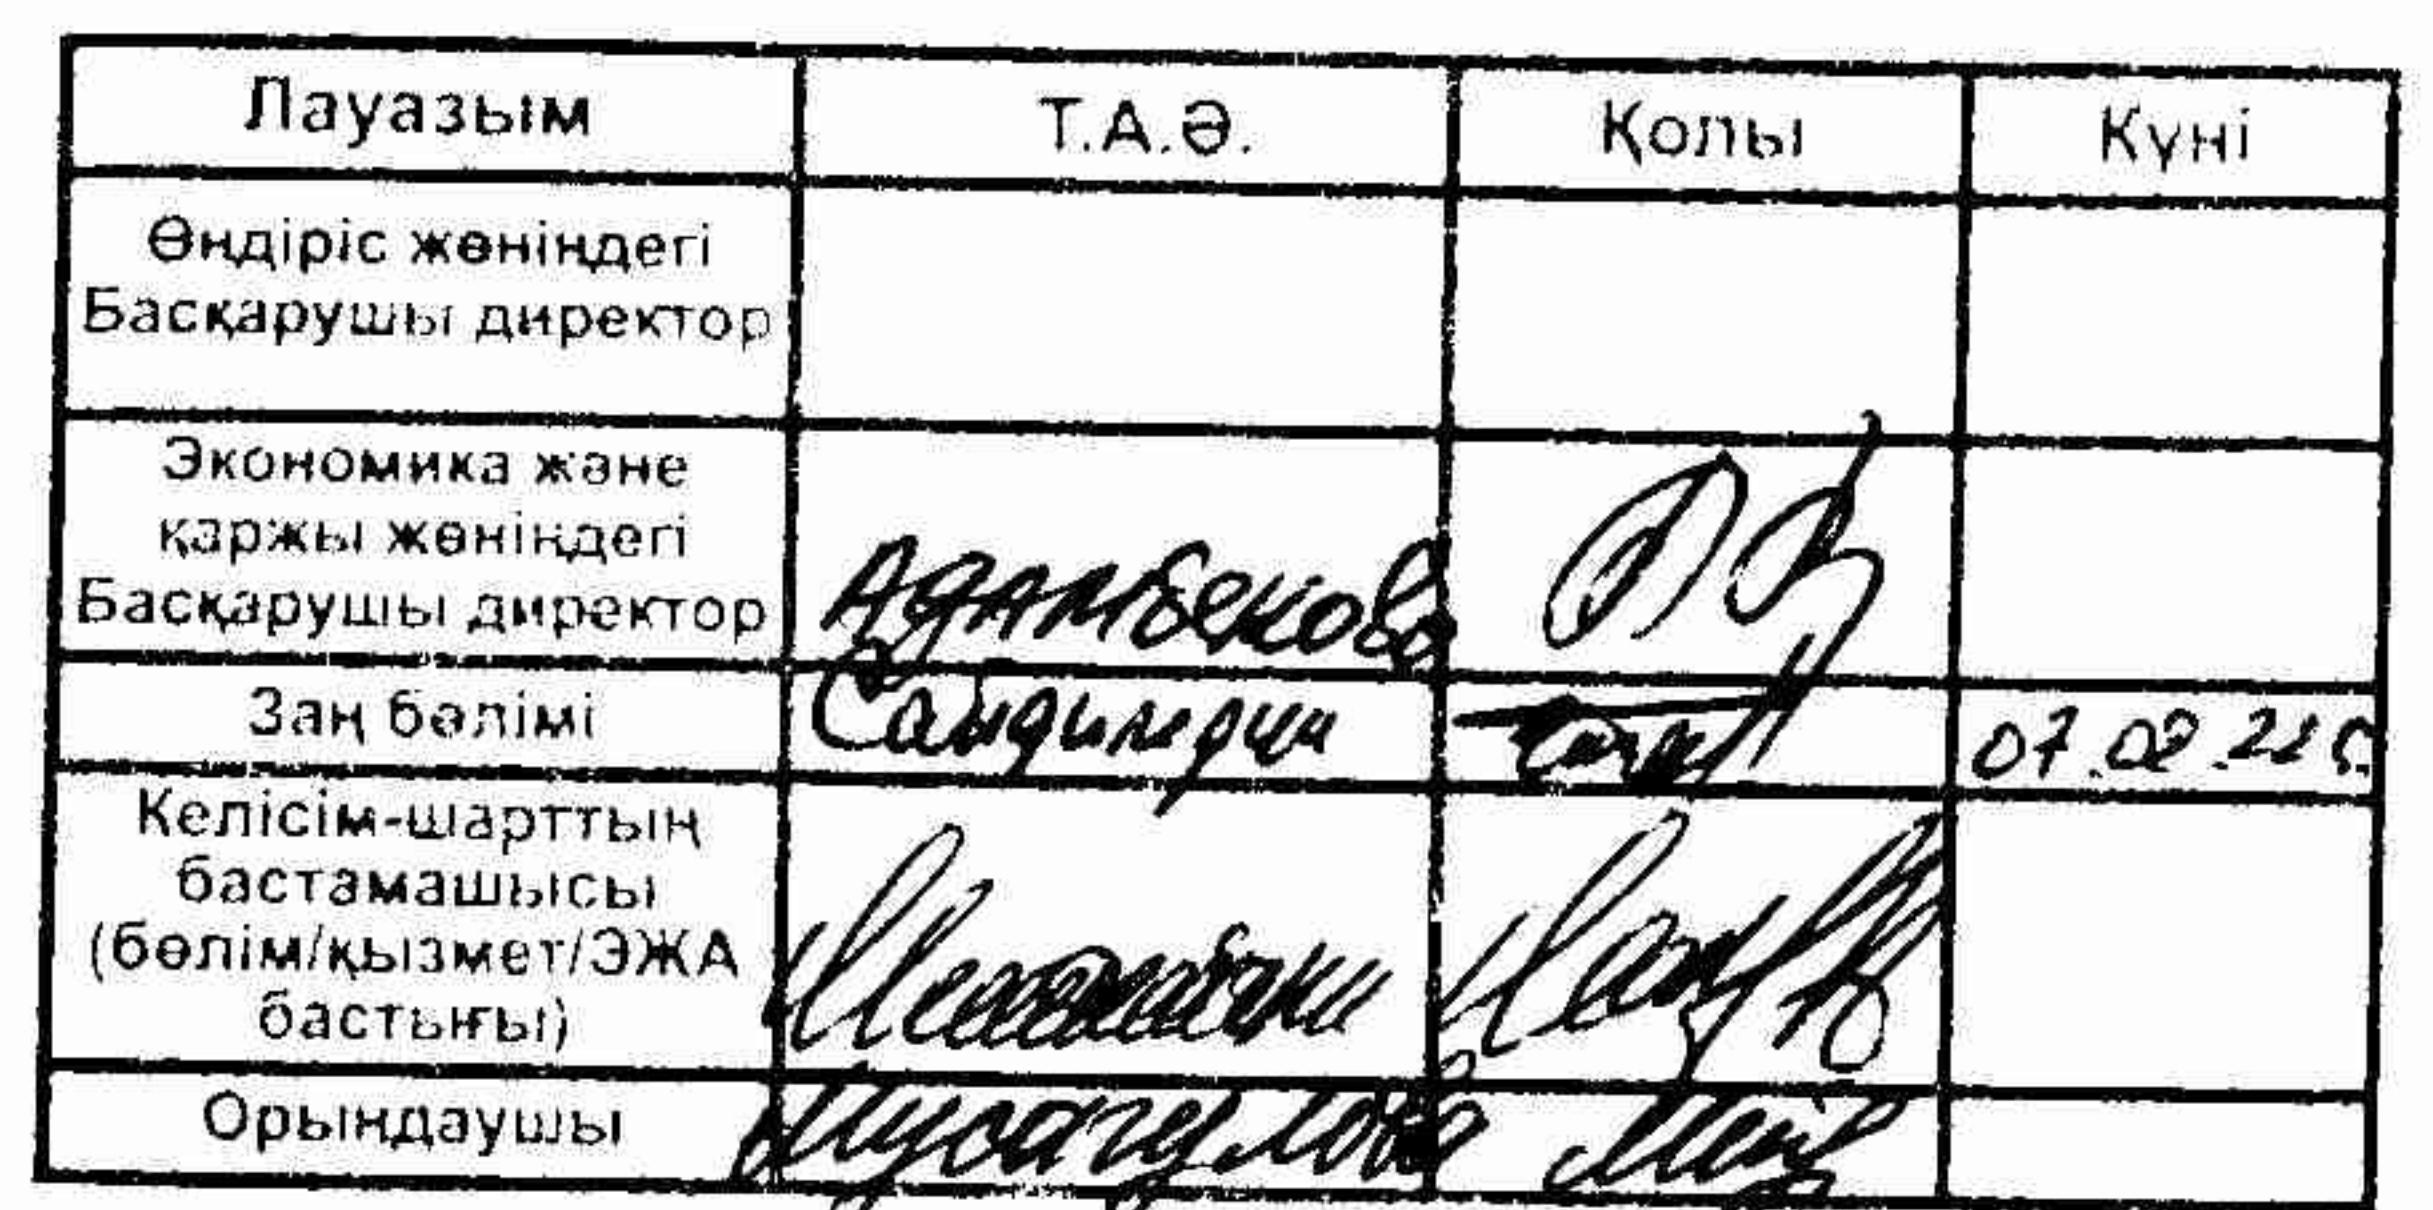 Лауазым Т.А.Ә. Қолы Күні
Өндіріс жөніндегі
Басқарушы директор
Экономика және
қаржы жөніндегі
Басқарушы директор Адамбекова
Заң бөлімі
Келісім-шарттың
бастамашысы
(бөлім/қызмет/ЭЖА
бастығы)
Орындаушы Мусагулова